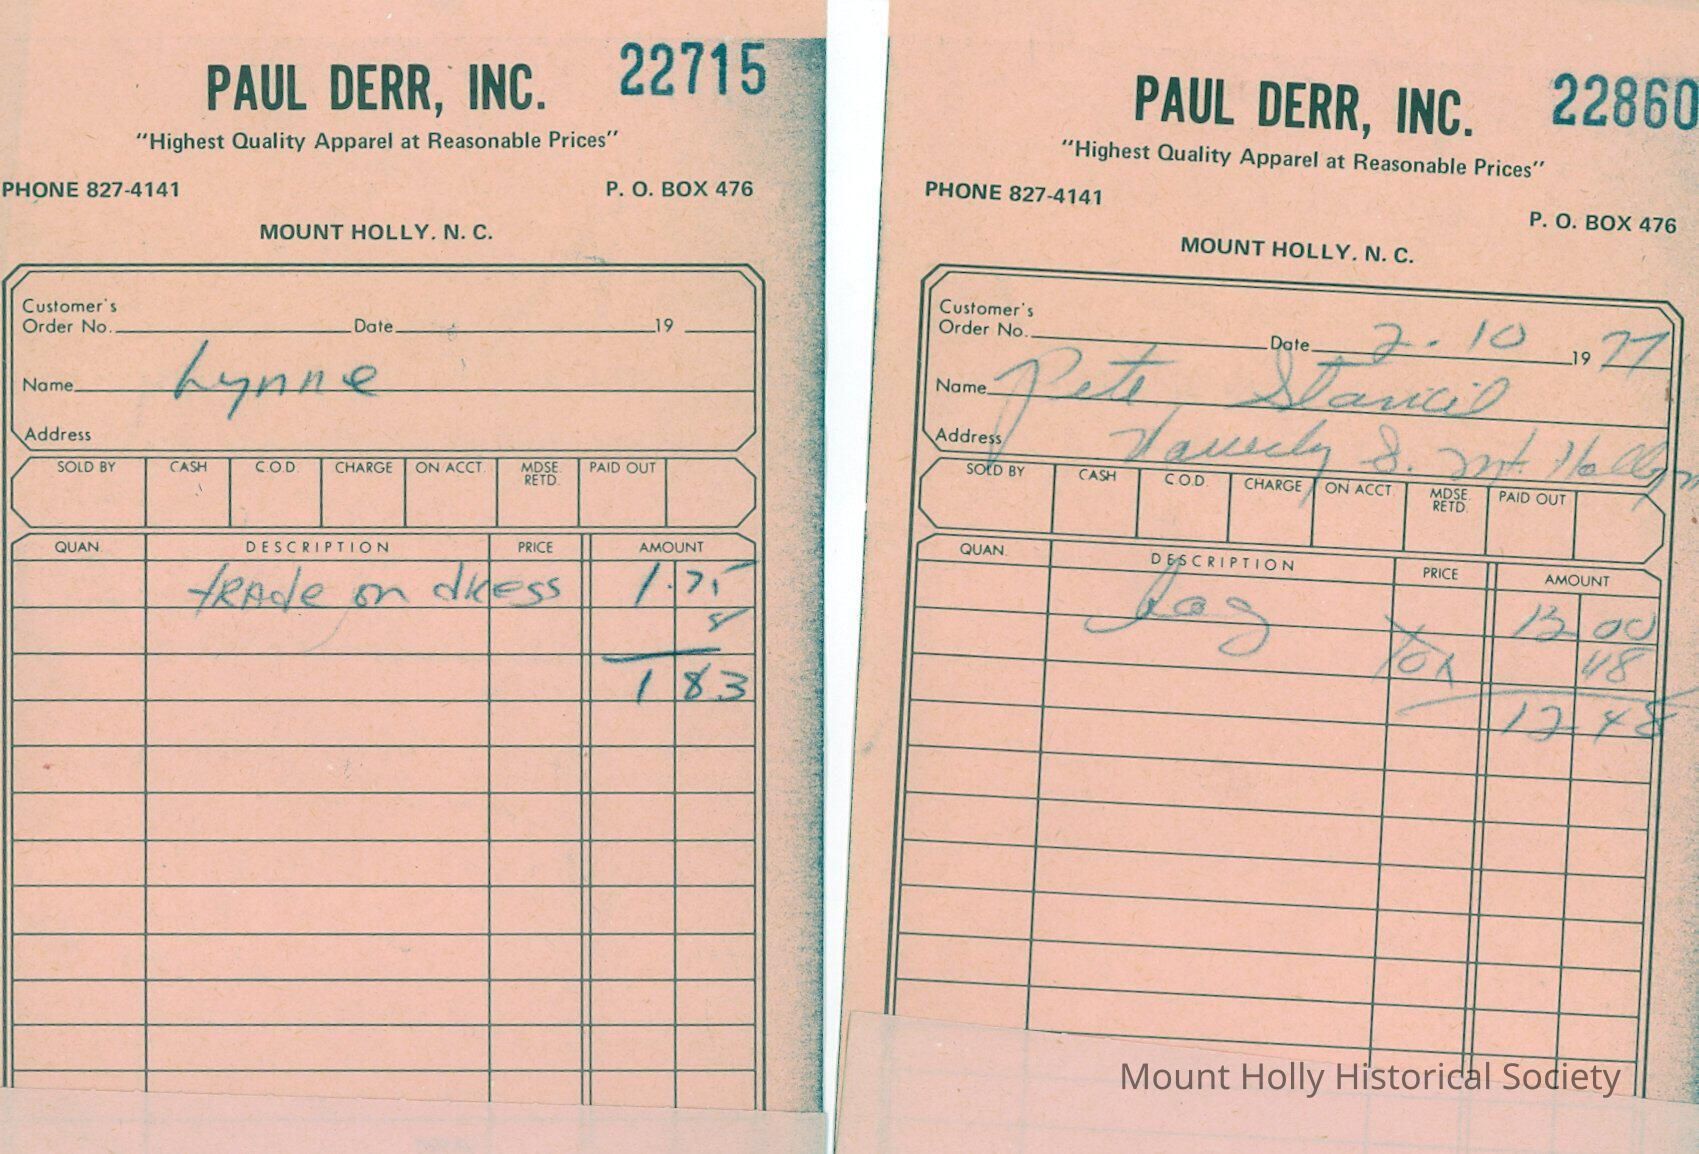 22715
PAUL DERR, INC.
"Highest Quality Apparel at Reasonable Prices"
PHONE 827-4141 P. O. BOX 476
MOUNT HOLLY. N. C.
Customer's
Order No. Date 19
Name Lynne
Address
SOLD BY CASH C.O.D. CHARGE ON ACCT. MDSE. RETD. PAID OUT
QUAN. DESCRIPTION PRICE AMOUNT
tRAde on dRess 1.75
8
1 83
22860
PAUL DERR, INC.
"Highest Quality Apparel at Reasonable Prices"
PHONE 827-4141
P. O. BOX 476
MOUNT HOLLY. N. C.
Customer's
Order No. Date 2-10 1977
Name Pete Stancil
Address Waverly Mt. Holly
SOLD BY CASH C.O.D. CHARGE ON ACCT. MDSE. RETD. PAID OUT
QUAN. DESCRIPTION PRICE AMOUNT
12 00
Tax 48
12 48
Mount Holly Historical Society